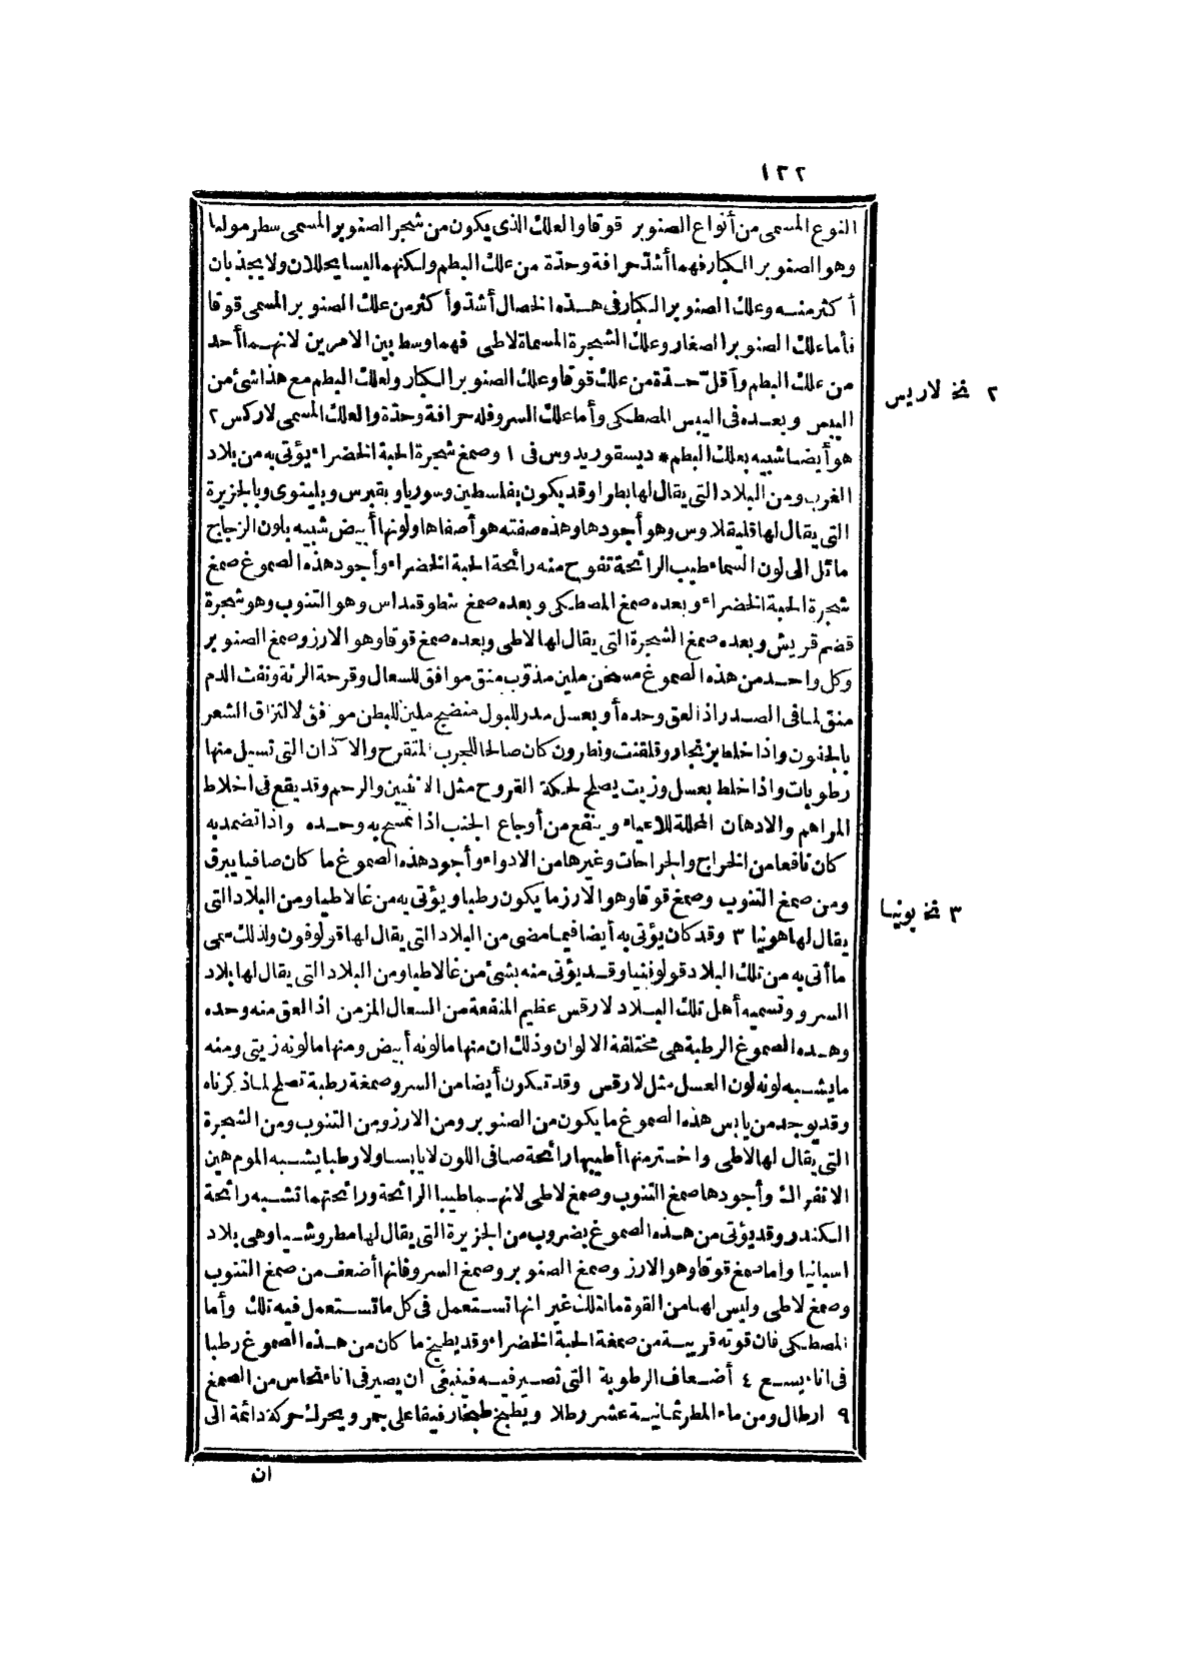 ١٣٢
النوع المسمى من أنواع الصنوبر قوقا والعلك الذى يكون من شجر الصنوبر المسمى سطرمولها
وهو الصنوبر الكبار فهما أشد حرافة وحدة من علك البطم ولكنهما ليسا يحللان ولا يجذبان
أكثر منه وعلك الصنوبر الكبار فى هذه الخصال أشد وأكثر من علك الصنوبر المسمى قوقا
فأما علك الصنوبر الصغار وعلك الشجرة المسماة لاطى فهما وسط بين الامرين لانهما أحد
من علك البطم وأقل حدة من علك قوقا وعلك الصنوبر الكبار ولعلك البطم مع هذا شئ من
اليبس وبعده فى اليبس المصطكى وأما علك السرو فله حرافة وحدة والعلك المسمى لاركس ٢
هو أيضا شبيه بعلك البطم * ديسقوريدوس فى ١ وصمغ شجرة الحبة الخضراء يؤتى به من بلاد
الغرب ومن البلاد التى يقال لها بطرا وقد يكون بفلسطين وسوريا وبقبرس وبلينوى وبالجزيرة
التى يقال لها قليقلاوس وهو أجودها وهذه صفته هو أصفاها ولونها أبيض شبيه بلون الزجاج
مائل الى لون السماء طيب الرائحة تفوح منه رائحة الحبة الخضراء وأجود هذه الصموغ صمغ
شجرة الحبة الخضراء وبعده صمغ المصطكى وبعده صمغ شطوقيداس وهو التنوب وهو شجرة
قضم قريش وبعده صمغ الشجرة التى يقال لها لاطى وبعده صمغ قوقا وهو الارز وصمغ الصنوبر
وكل واحد من هذه الصموغ مسخن ملين مذوب منق موافق للسعال وقرحة الرئة ونفث الدم
منق لما فى الصدر اذا لعق وحده أو بعسل مدر للبول منضج ملين للبطن موافق لالتزاق الشعر
بالجفون واذا خلط بزنجار وقلقنت ونطرون كان صالحا للجرب المتقرح والآذان التى تسيل منها
رطوبات واذا خلط بعسل وزيت يصلح لحكة القروح مثل الانثيين والرحم وقد يقع فى اخلاط
المراهم والادهان المحللة للاعياء وينفع من أوجاع الجنب اذا تمسح به وحده واذا تضمد به
كان نافعا من الخراج والجراحات وغيرها من الادواء وأجود هذه الصموغ ما كان صافيا يبرق
ومن صمغ التنوب وصمغ قوقا وهو الارز ما يكون رطبا ويؤتى به من غالاطيا ومن البلاد التى
يقال لها هونيا ٣ وقد كان يؤتى به أيضا فيما مضى من البلاد التى يقال لها قولوفون ولذلك سمى
ما أتى به من تلك البلاد قولوفنيا وقد يؤتى منه بشئ من غالاطيا ومن البلاد التى يقال لها بلاد
السرو وتسميه أهل تلك البلاد لارقس عظيم المنفعة من السعال المزمن اذا لعق منه وحده
وهذه الصموغ الرطبة هى مختلفة الالوان وذلك ان منها ما لونه أبيض ومنها ما لونه زيتى ومنه
ما يشبه لونه لون العسل مثل لارقس وقد تكون أيضا من السرو صمغة رطبة تصلح لما ذكرناه
وقد يوجد من يابس هذه الصموغ ما يكون من الصنوبر ومن الارز ومن التنوب ومن الشجرة
التى يقال لها لاطى واختر منها أطيبها رائحة صافى اللون لا يابسا ولا رطبا يشبه الموم هين
الانفراك وأجودها صمغ التنوب وصمغ لاطى لانهما طيبا الرائحة ورائحتهما تشبه رائحة
الكندر وقد يؤتى من هذه الصموغ بضروب من الجزيرة التى يقال لها مطروشيا وهى بلاد
اسبانيا واما صمغ قوقا وهو الارز وصمغ الصنوبر وصمغ السرو فانها أضعف من صمغ التنوب
وصمغ لاطى وليس لها من القوة ما لتلك غير انها تستعمل فى كل ما تستعمل فيه تلك وأما
المصطكى فان قوته قريبة من صمغة الحبة الخضراء وقد يطبخ ما كان من هذه الصموغ رطبا
فى اناء يسع ٤ أضعاف الرطوبة التى تصير فيه فينبغى ان يصير فى اناء نحاس من الصمغ
٩ ارطال ومن ماء المطر ثمانية عشر رطلا ويطبخ طبخا رفيقا على جمر ويحرك حركة دائمة الى
ان
٢ نخ لاريس
٣ نخ بونيا